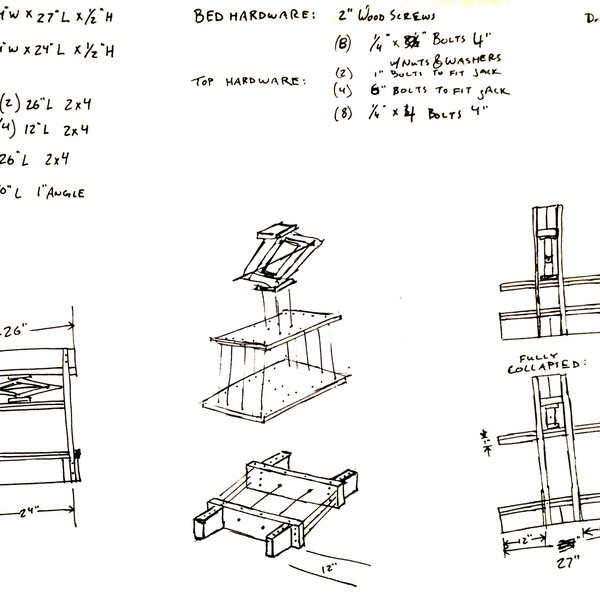 "W x 27"L x ½"H
"W x 24"L x ½"H
(2) 26"L 2x4
4) 12"L 2x4
26"L 2x4
0"L 1" ANGLE
BED HARDWARE: 2" WOOD SCREWS
(8) ¼" x " BOLTS 4"
w/NUTS & WASHERS
TOP HARDWARE: (2) 1" BOLTS TO FIT JACK
(4) 6" BOLTS TO FIT JACK
(8) ¼" x 4 BOLTS 4"
D.
26"
24"
12"
FULLY
COLLAPSED:
1"
12"
27"